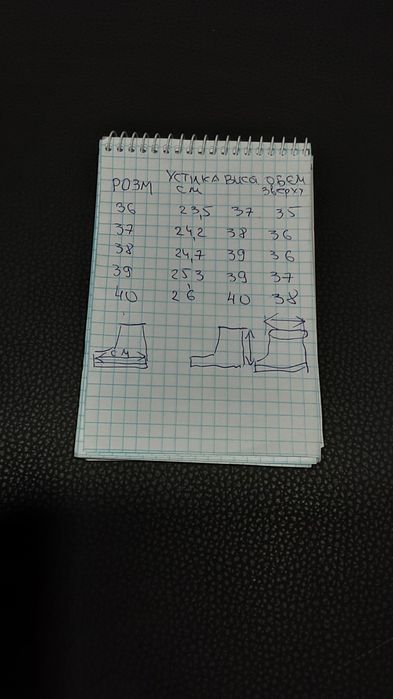 РОЗМ УСТІЛКА ВИСО ОБЄМ
СМ ЗВЕРХУ
36 23,5 37 35
37 24,2 38 36
38 24,7 39 36
39 25,3 39 37
40 26 40 38
СМ